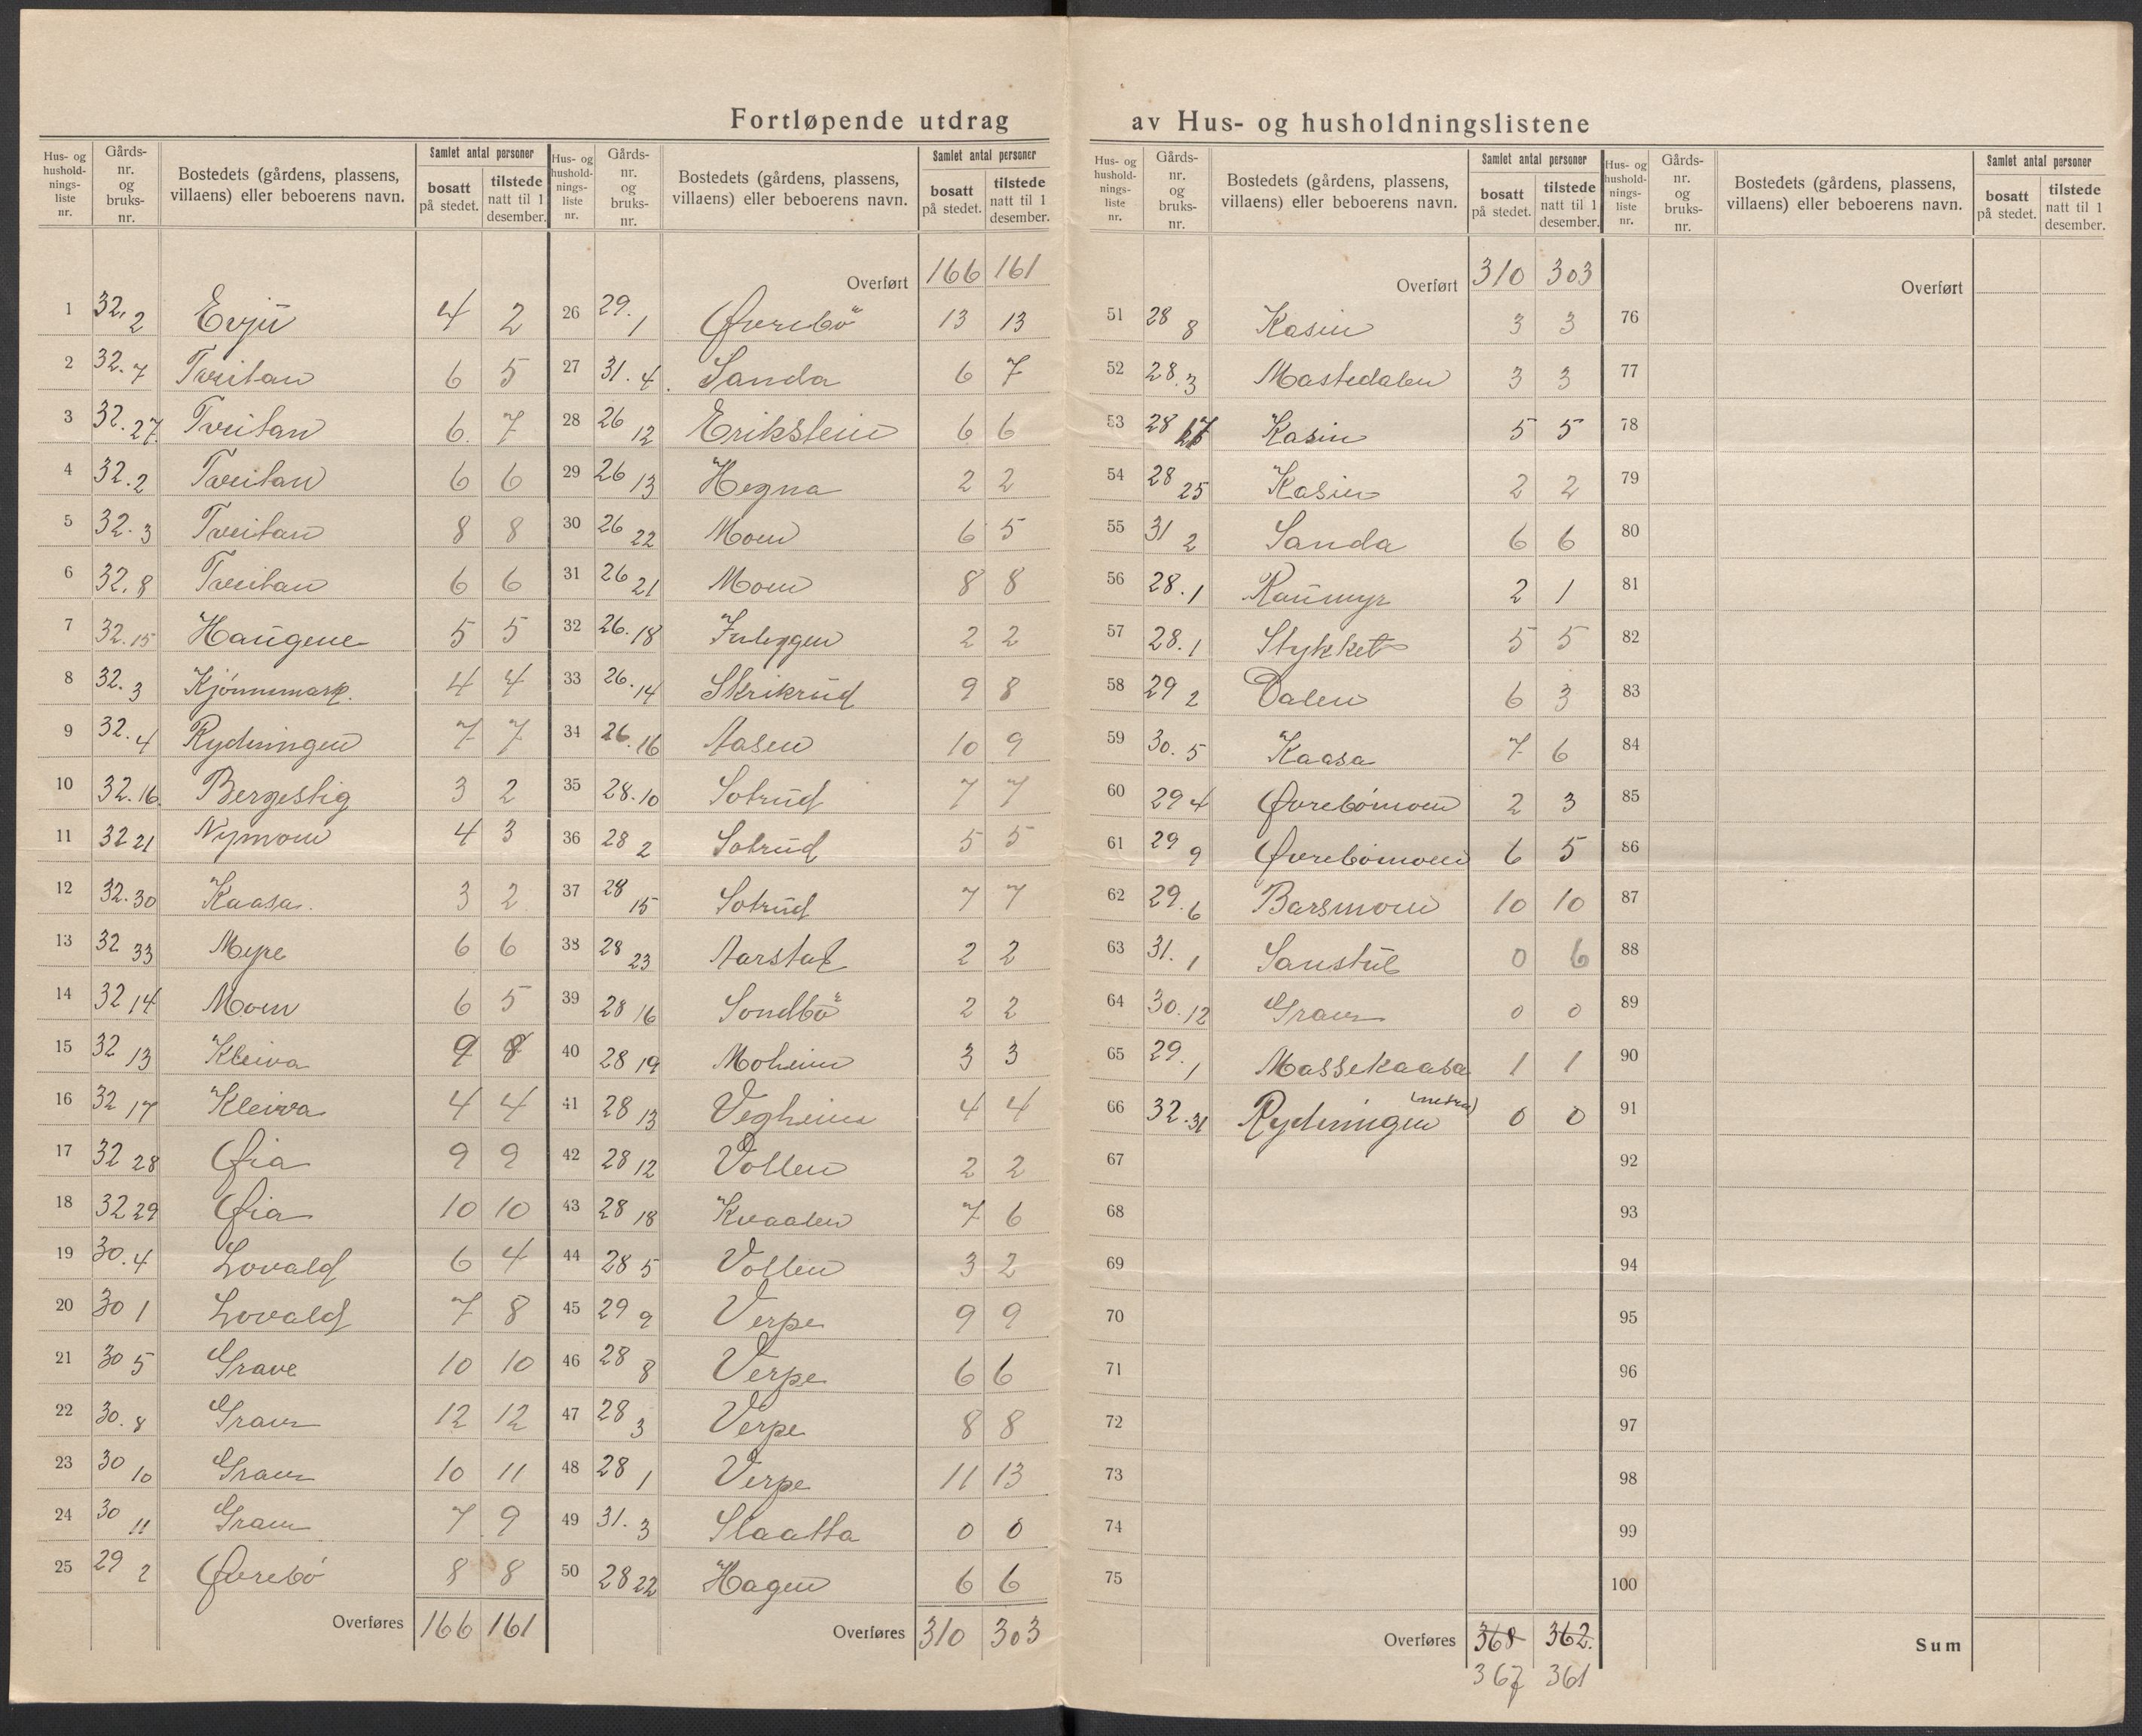 Fortløpende utdrag av Hus- og husholdningslistene
Hus- og husholdnings-liste nr. Gårds-nr. og bruks-nr. Bostedets (gårdens, plassens, villaens) eller beboerens navn. Samlet antal personer bosatt på stedet. tilstede natt til 1 desember.
1 32. 2 Evju 4 2
2 32. 7 Tveitan 6 5
3 32. 27. Tveitan 6. 7
4 32. 2 Tveitan 6 6
5 32. 3 Tveitan 8 8
6 32. 8 Tveitan 6 6
7 32. 15 Haugene 5 5
8 32. 3 Kjønnmark. 4 4
9 32. 4 Rydningen 7 7
10 32. 16. Bergestig 3 2
11 32 21 Nymoen 4 3
12 32. 30 Kaasa. 3 2
13 32 33 Mype 6 6
14 32 14 Moen 6 5
15 32 13 Kleiva 9 8
16 32 17 Kleiva 4 4
17 32 28 Øia 9 9
18 32 29 Øia 10 10
19 30. 4 Lovald 6 4
20 30 1 Lovald 7 8
21 30 5 Grave 10 10
22 30. 8 Grave 12 12
23 30 10 Grave 10 11
24 30 11 Grave 7 9
25 29 2 Øvrebø 8 8
Overføres 166 161
Hus- og husholdnings-liste nr. Gårds-nr. og bruks-nr. Bostedets (gårdens, plassens, villaens) eller beboerens navn. Samlet antal personer bosatt på stedet. tilstede natt til 1 desember.
Overført 166 161
26 29. 1 Øvrebø 13 13
27 31. 4. Sanda 6 7
28 26 12 Erikstein 6 6
29 26 13 Hegna 2 2
30 26 22 Moen 6 5
31 26 21 Moen 8 8
32 26. 18 Juleggen 2 2
33 26. 14 Skrikrud 9 8
34 26. 16 Aasen 10 9
35 28. 10 Sotrud 7 7
36 28 2 Sotrud 5 5
37 28 15 Sotrud 7 7
38 28 23 Aarstad 2 2
39 28 16 Sondbø 2 2
40 28 19 Moheim 3 3
41 28 13 Vegheim 4 4
42 28 12 Vollen 2 2
43 28 18 Kvaalen 7 6
44 28 5 Vollen 3 2
45 29 9 Verpe 9 9
46 28 8 Verpe 6 6
47 28 3 Verpe 8 8
48 28 1 Verpe 11 13
49 31. 3 Slaatta 0 0
50 28 22 Hagen 6 6
Overføres 310 303
Hus- og husholdnings-liste nr. Gårds-nr. og bruks-nr. Bostedets (gårdens, plassens, villaens) eller beboerens navn. Samlet antal personer bosatt på stedet. tilstede natt til 1 desember.
Overført 310 303
51 28 8 Kasin 3 3
52 28. 3 Mastedalen 3 3
53 28 17 Kasin 5 5
54 28 25 Kasin 2 2
55 31 2 Sanda 6 6
56 28. 1 Raumyr 2 1
57 28. 1 Stykket 5 5
58 29 2 Dalen 6 3
59 30. 5 Kaasa 7 6
60 29 4 Øvrebømoen 2 3
61 29 9 Øvrebømoen 6 5
62 29. 6 Barsmoen 10 10
63 31. 1 Sanstul 0 6
64 30. 12 Grave 0 0
65 29. 1 Massekaasa 1 1
66 32. 31 Rydningen (nedre) 0 0
67
68
69
70
71
72
73
74
75
Overføres 368 362.
367 361
Hus- og husholdnings-liste nr. Gårds-nr. og bruks-nr. Bostedets (gårdens, plassens, villaens) eller beboerens navn. Samlet antal personer bosatt på stedet. tilstede natt til 1 desember.
Overført
76
77
78
79
80
81
82
83
84
85
86
87
88
89
90
91
92
93
94
95
96
97
98
99
100
Sum